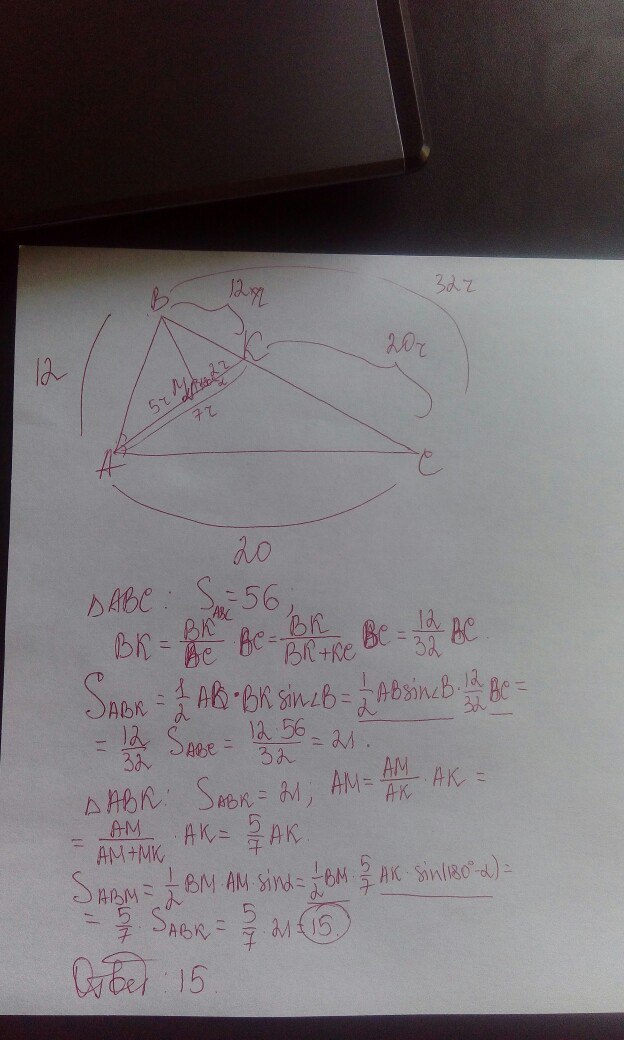 B
12x
32x
K
20x
12
5x M 2x
7x
A
C
20
ΔABC: S_ABC = 56;
BK = BK/BC · BC = BK/(BK+KC) BC = 12/32 BC.
S_ABK = 1/2 AB·BK sin∠B = 1/2 AB sin∠B · 12/32 BC =
= 12/32 S_ABC = 12·56/32 = 21.
ΔABK: S_ABK = 21; AM = AM/AK · AK =
= AM/(AM+MK) · AK = 5/7 AK.
S_ABM = 1/2 BM·AM·sinα = 1/2 BM · 5/7 AK · sin(180°-α) =
= 5/7 · S_ABK = 5/7 · 21 = 15.
Ответ: 15.